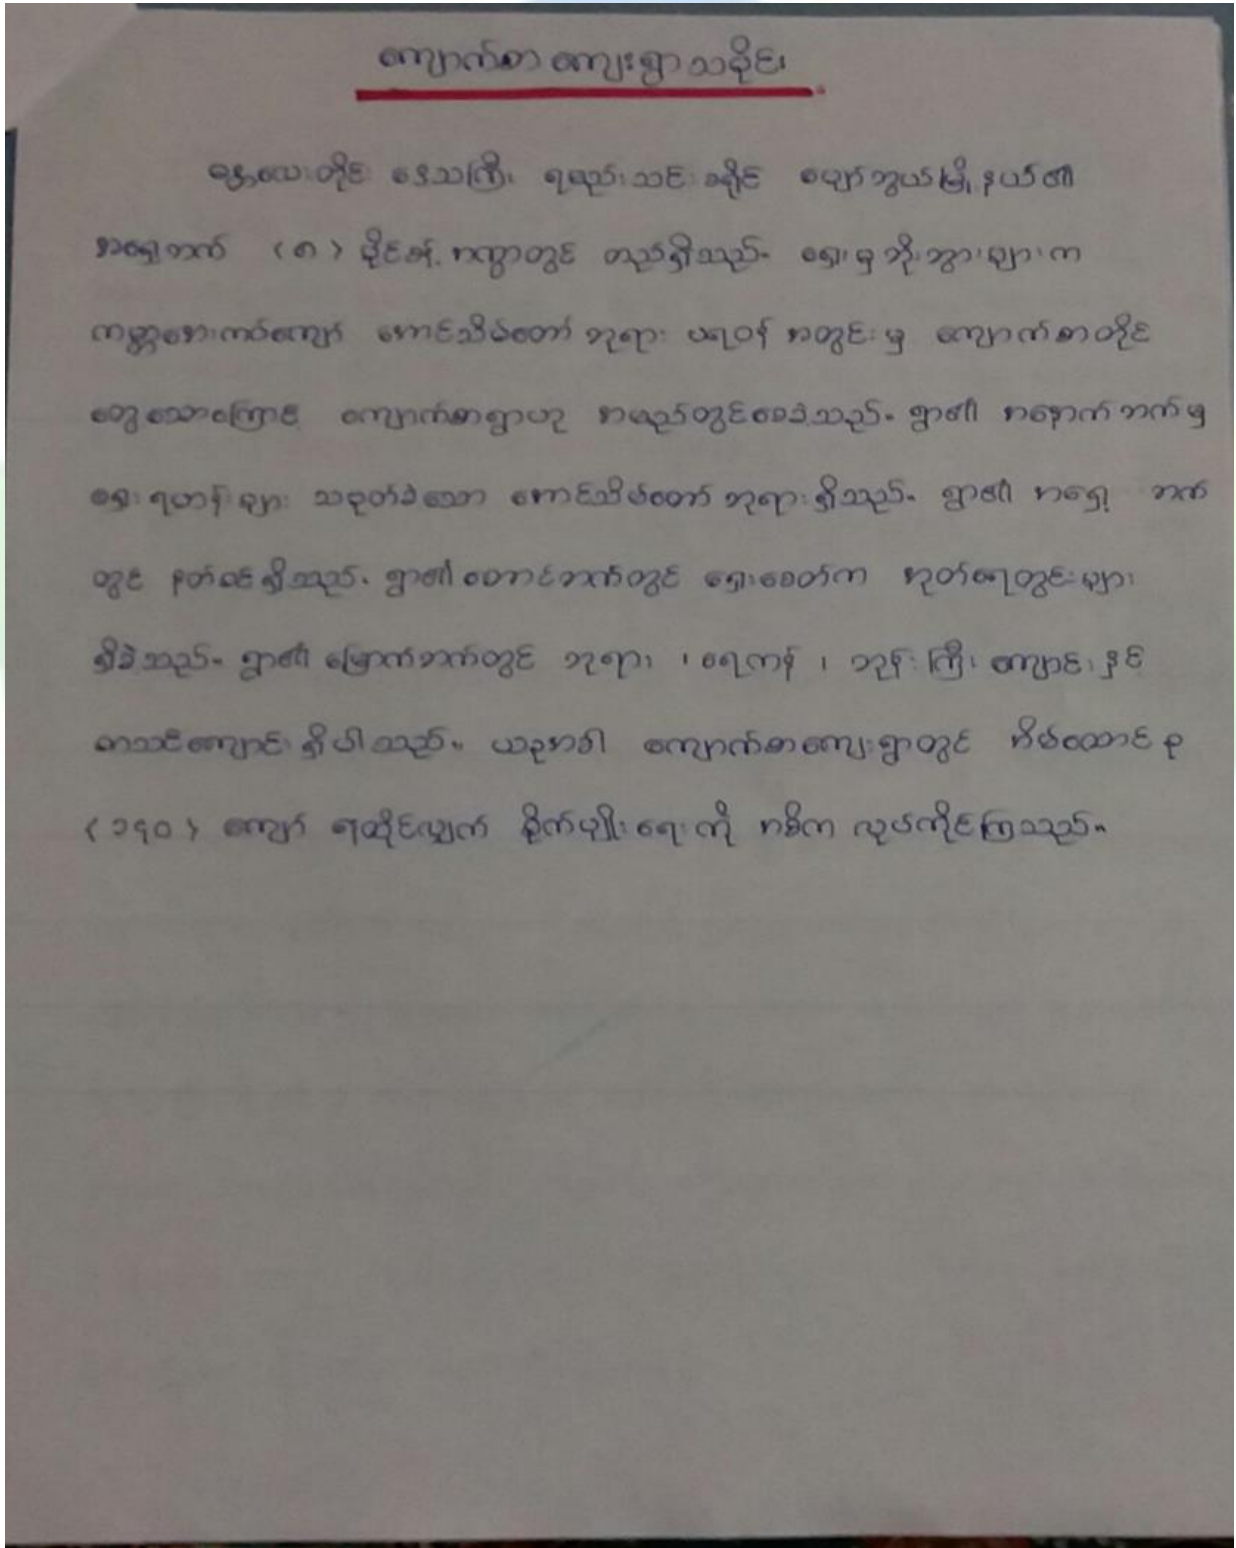 ကျောက်စာ ကျေးရွာ သမိုင်း
မန္တလေးတိုင်း ဒေသကြီး ရမည်းသင်း ခရိုင် ပျော်ဘွယ်မြို့နယ်၏
အရှေ့ဘက် (၈) မိုင်ခန့် အကွာတွင် တည်ရှိသည်။ ရှေးမှ ဘိုးဘွားများက
ကမ္ဘာအေးကပ်ကျော် အောင်သိမ်တော် ဘုရား ပရဝန် အတွင်းမှ ကျောက်စာတိုင်
တွေ့သောကြောင့် ကျောက်စာရွာဟု အမည်တွင်စေခဲ့သည်။ ရွာ၏ အနောက်ဘက်မှ
ရှေးရဟန်းများ သမုတ်ခဲ့သော အောင်သိမ်တော် ဘုရားရှိသည်။ ရွာ၏ အရှေ့ ဘက်
တွင် နတ်စင်ရှိသည်။ ရွာ၏ တောင်ဘက်တွင် ရှေးခေတ်က အုတ်ရေတွင်းများ
ရှိခဲ့သည်။ ရွာ၏ မြောက်ဘက်တွင် ဘုရား ၊ ရေကန် ၊ ဘုန်းကြီး ကျောင်းနှင့်
စာသင်ကျောင်း ရှိပါသည်။ ယခုအခါ ကျောက်စာကျေးရွာတွင် အိမ်ထောင်စု
(၁၄၀) ကျော် နေထိုင်လျှက် စိုက်ပျိုးရေးကို အဓိက လုပ်ကိုင်ကြသည်။